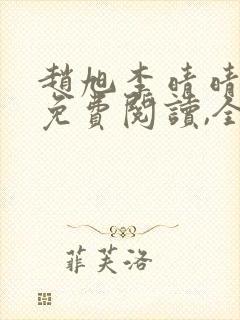 趙旭李晴晴
免費閱讀,全
菲芙洛